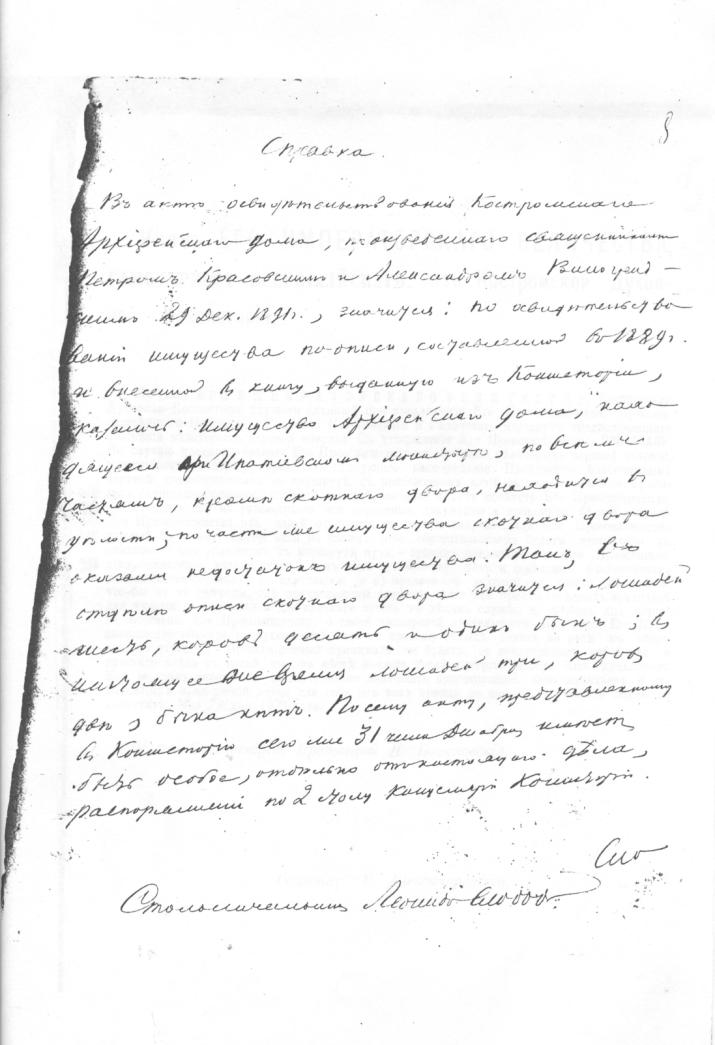 Справка.
Въ актѣ освидѣтельствованія Костромскаго
Архіерейскаго дома, произведеннаго священниками
Петромъ Красовскимъ и Александромъ
29 Дек. 1891г., значится: по освидѣтельство
ваніи имущества по описи, составленной въ 1889г.
и внесенной въ книгу, выданную изъ Консисторіи,
имущество Архіерейскаго дома, нахо
дящееся при Ипатіевскомъ монастырѣ, по всѣмъ
частямъ, кромѣ скотнаго двора, находится въ
цѣлости; по части же имущества скотнаго двора
оказался недостатокъ имущества. Такъ, въ
описи скотнаго двора значится: лошадей
шесть, коровъ десять и одинъ быкъ; въ
настоящее же время лошадей три, коровъ
двѣ, быка нѣтъ. По сему акту, представленному
въ Консисторію сего же 31 числа Декабря имѣетъ
быть особое, отдѣльно отъ настоящаго дѣла,
распоряженіе по 2 столу Канцеляріи Консисторіи.
Столоначальникъ Леонидъ